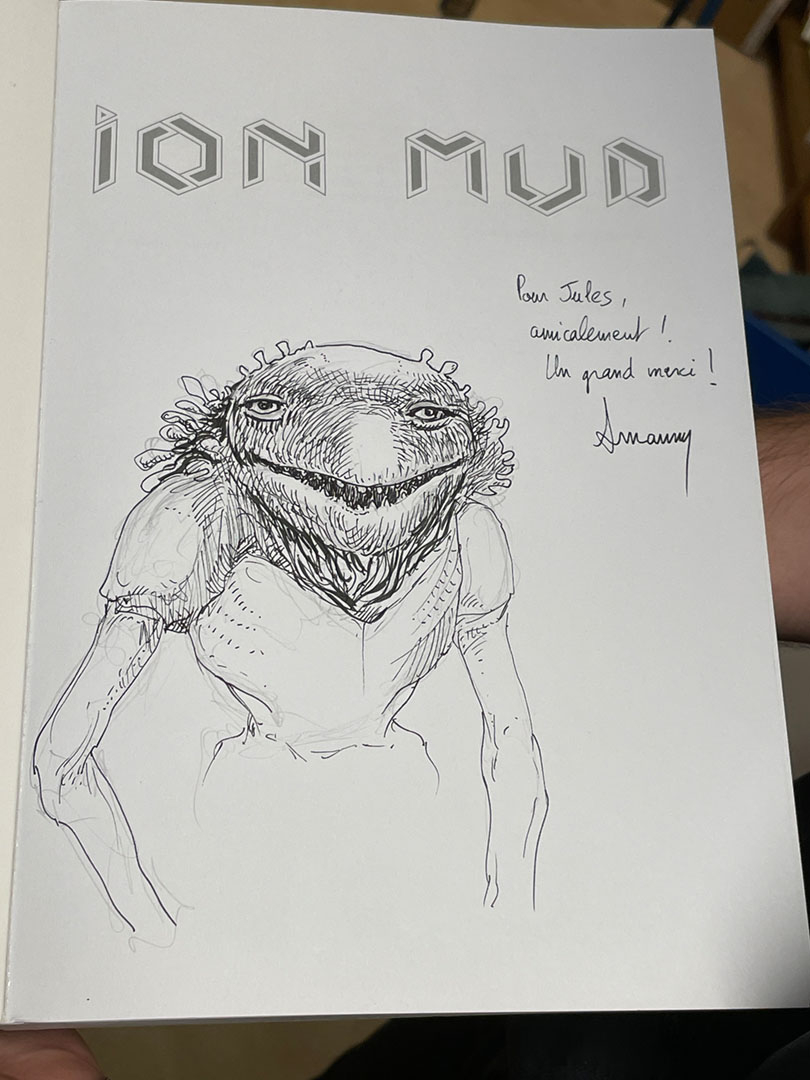 ION MUD
Pour Jules,
amicalement !
Un grand merci !
Amaury